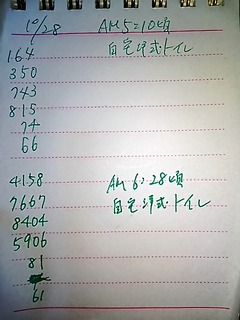 10/28 AM5:10頃
164 自宅洋式トイレ
350
743
815
74
66
4158 AM6:28頃
7667 自宅洋式トイレ
8404
5906
81
61